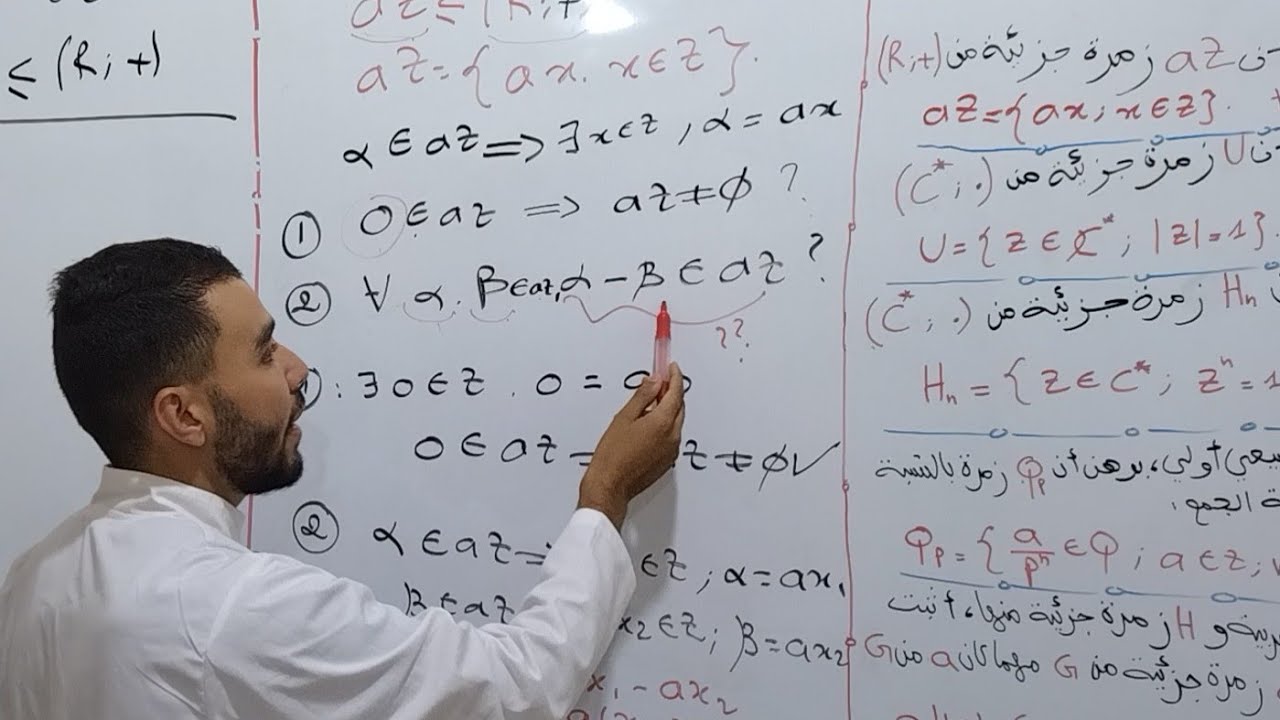 ≤ (R; +)
aZ ≤ (R; +)
aZ = { ax . x ∈ Z }.
α ∈ aZ => ∃ x ∈ Z , α = ax
① 0 ∈ aZ => aZ ≠ ∅ ?
② ∀ α . β ∈ aZ, α - β ∈ aZ ?
??
: ∃ 0 ∈ Z . 0 =
0 ∈ aZ = Z ≠ ∅ ✓
② α ∈ aZ => ∈ Z ; α = ax₁
β ∈ aZ x₂ ∈ Z ; β = ax₂
x₁ - ax₂
aZ زمرة جزئية من (R;+)
aZ = { ax ; x ∈ Z }.
U زمرة جزئية من (C* ; .)
U = { Z ∈ C* ; |Z| = 1 }.
Hn زمرة جزئية من (C* ; .)
Hn = { Z ∈ C* ; Zⁿ = 1
أولي، برهن أن Qp زمرة بالنسبة
الجمع.
Qp = { a/pⁿ ∈ Q ; a ∈ Z ;
و H زمرة جزئية منها، أثبت
زمرة جزئية من G مهما كان a من G